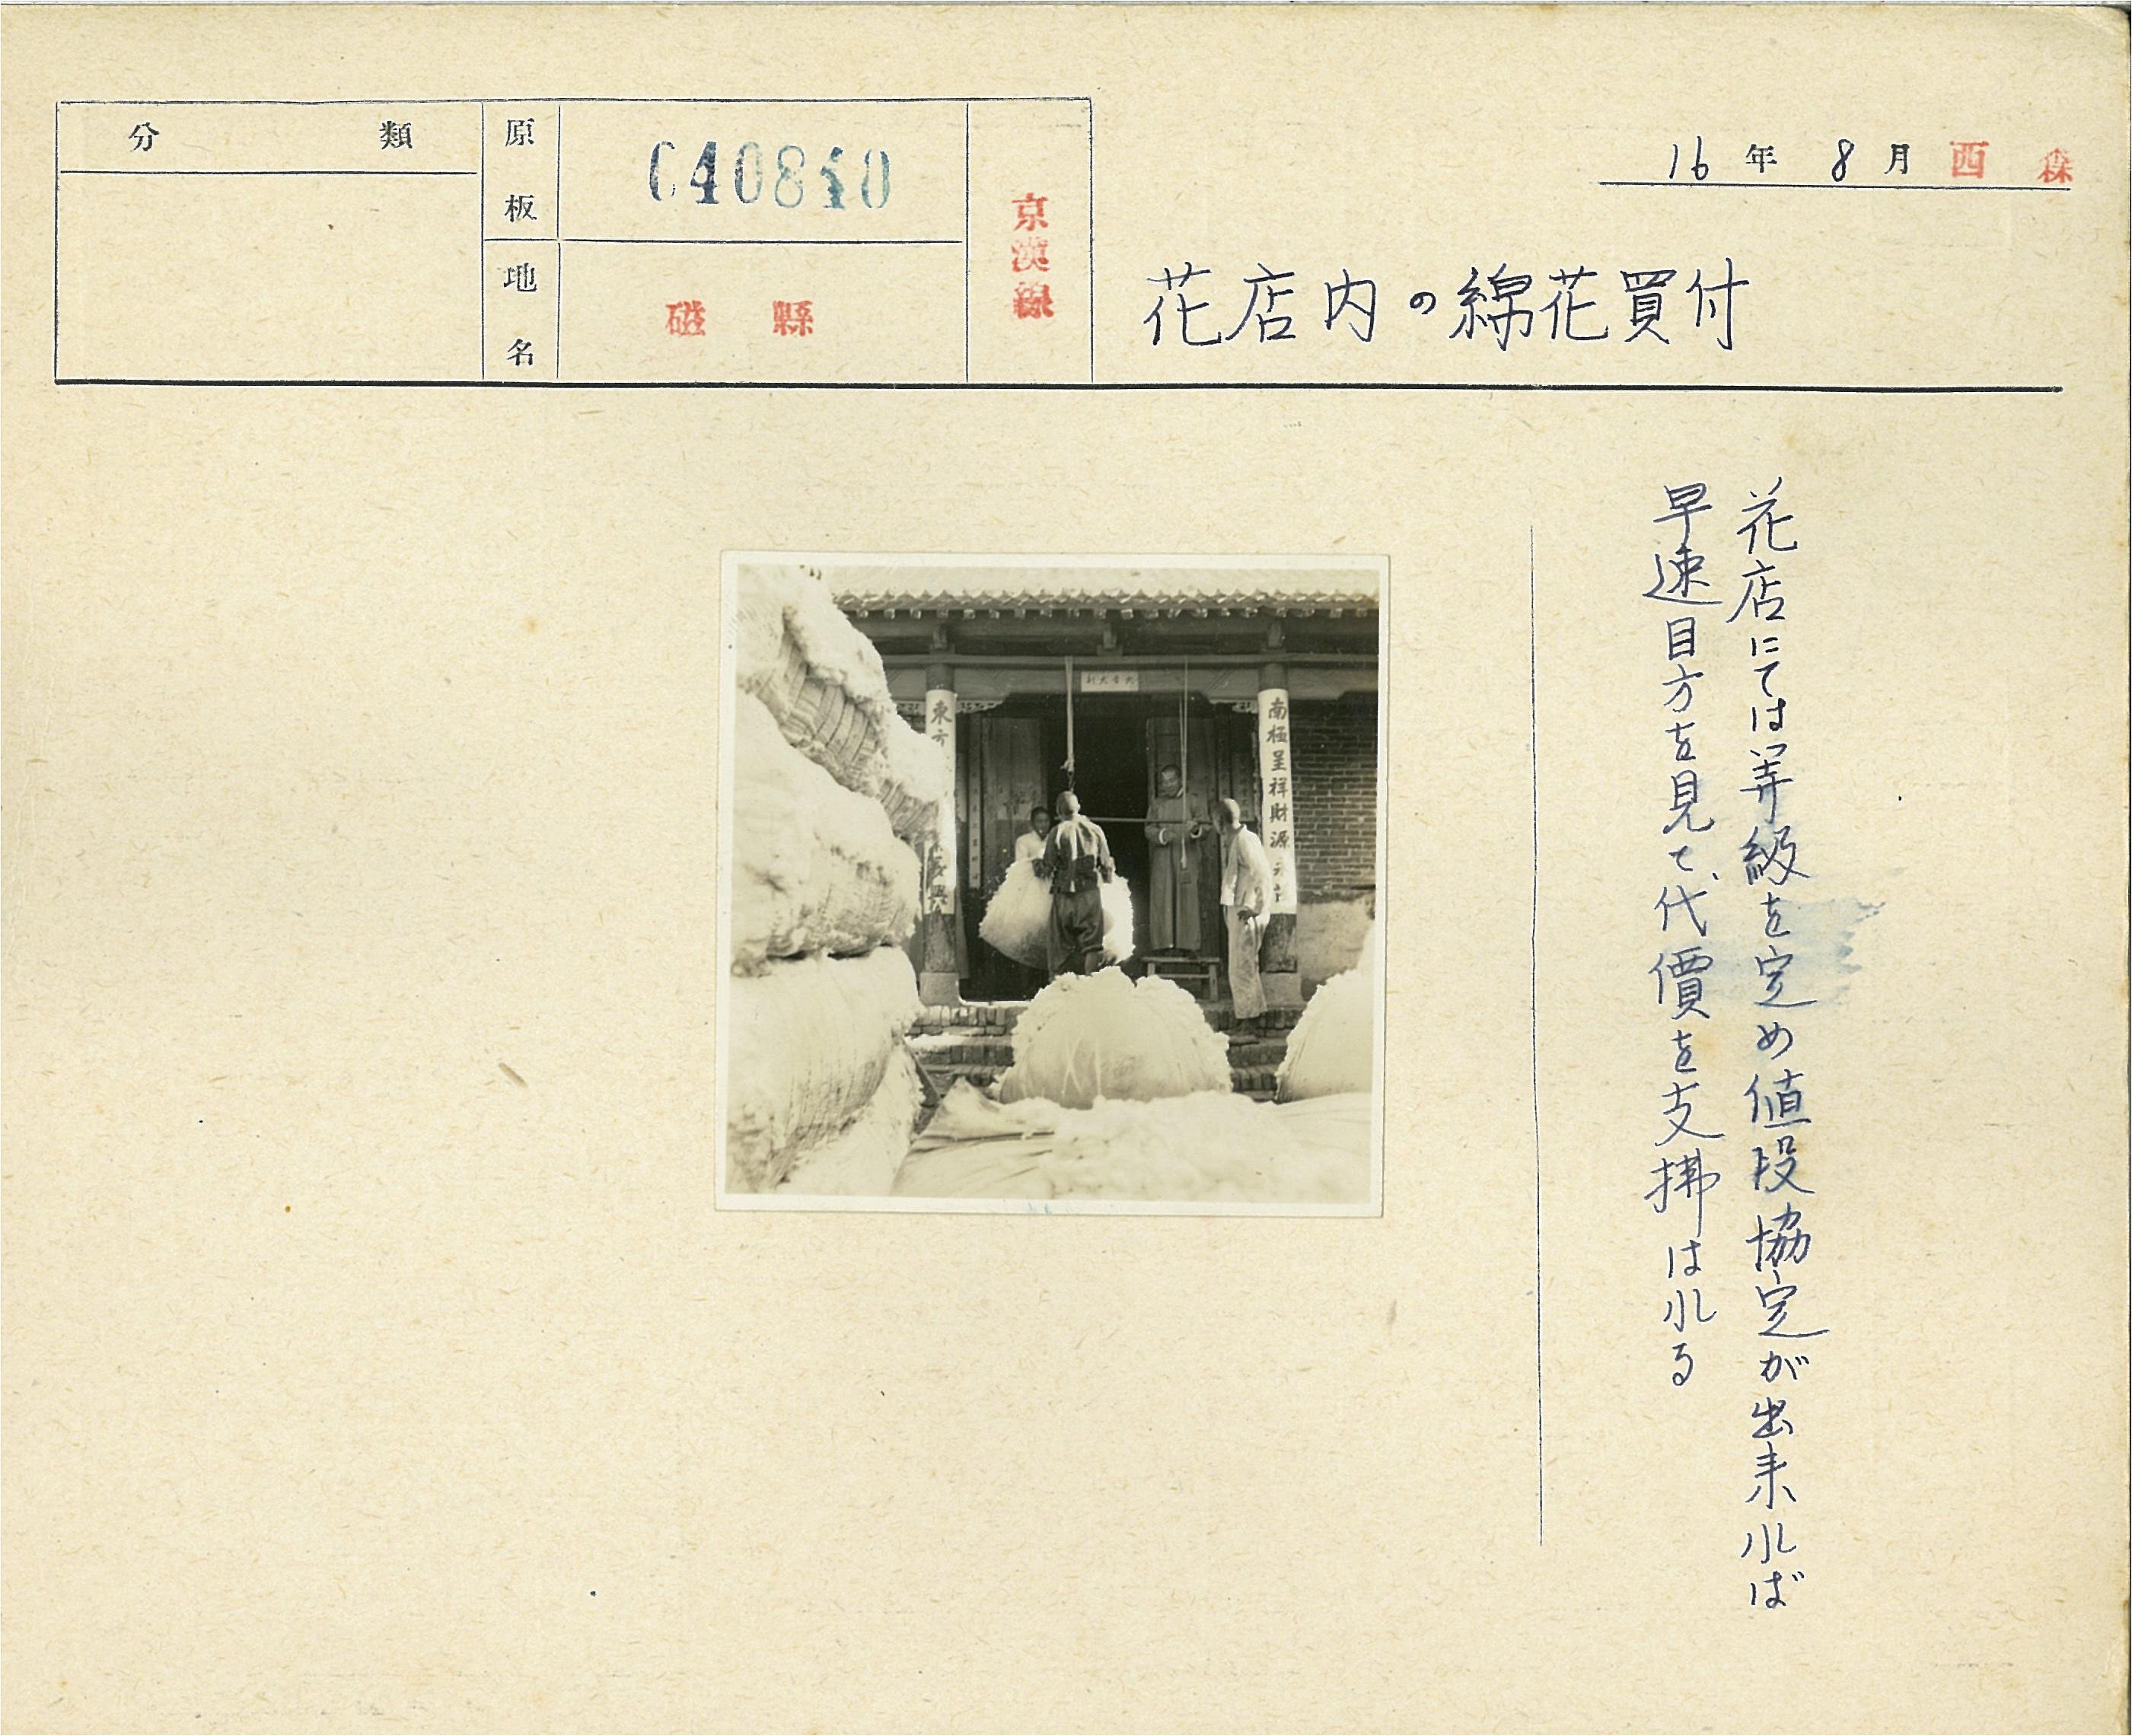 分類
原板
C40840
地名
磁縣
京漢線
16年8月 西森
花店内の綿花買付
花店にては等級を定め値段協定が出来れば
早速目方を見て、代價を支拂はれる
東方
興
南極呈祥財源